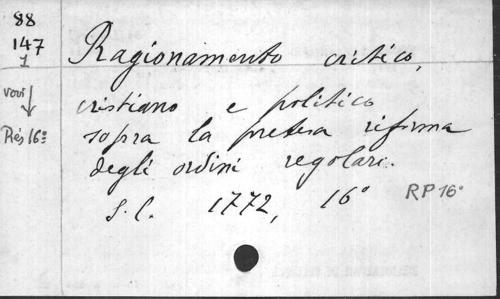 88
147
1
Rés 16º
Ragionamento critico,
cristiano e politico
sopra la pretesa riforma
degli ordini regolari.
S.l. 1772, 16º
RP 16º